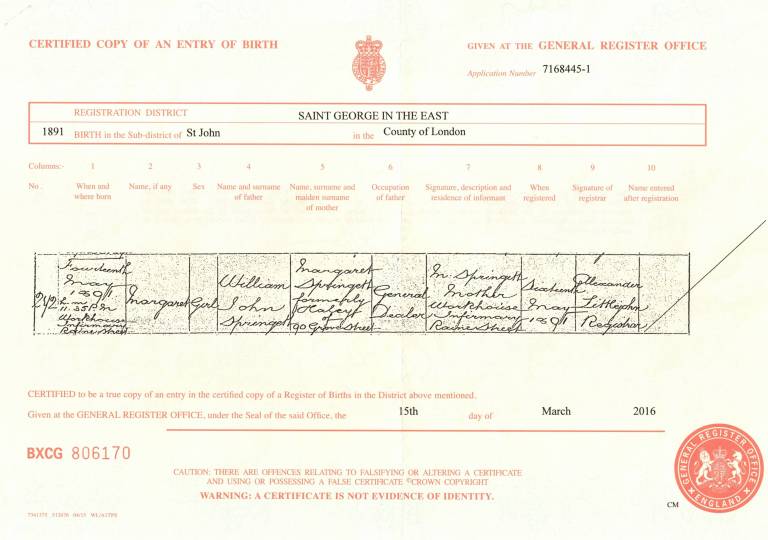 CERTIFIED COPY OF AN ENTRY OF BIRTH
GIVEN AT THE GENERAL REGISTER OFFICE
Application Number 7168445-1
REGISTRATION DISTRICT
SAINT GEORGE IN THE EAST
1891 BIRTH in the Sub-district of St John in the County of London
Columns:- 1 2 3 4 5 6 7 8 9 10
No. When and where born
Name, if any
Sex
Name and surname of father
Name, surname and maiden surname of mother
Occupation of father
Signature, description and residence of informant
When registered
Signature of registrar
Name entered after registration
242
Fourteenth
May
1891
11.35 P.M
Workhouse
Infirmary
Raine Street
Margaret
Girl
William
John
Springett
Margaret
Springett
formerly
of
90 Grove Street
General
Dealer
M. Springett
Mother
Workhouse
Infirmary
Raine Street
Sixteenth
May
1891
Alexander
Littlejohn
Registrar
CERTIFIED to be a true copy of an entry in the certified copy of a Register of Births in the District above mentioned.
Given at the GENERAL REGISTER OFFICE, under the Seal of the said Office, the 15th day of March 2016
BXCG 806170
CAUTION: THERE ARE OFFENCES RELATING TO FALSIFYING OR ALTERING A CERTIFICATE
AND USING OR POSSESSING A FALSE CERTIFICATE ©CROWN COPYRIGHT
WARNING: A CERTIFICATE IS NOT EVIDENCE OF IDENTITY.
GENERAL REGISTER OFFICE
ENGLAND
CM